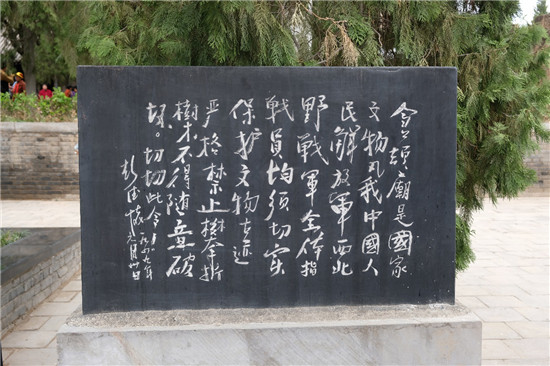 仓頡廟是國家
文物凡我中國人
民解放軍西北
野戰軍全体指
戰員均須切实
保护文物古迹
严格禁止攀折
樹木不得随意破
坏。切切此令
彭德怀
一九四九年
月卅日